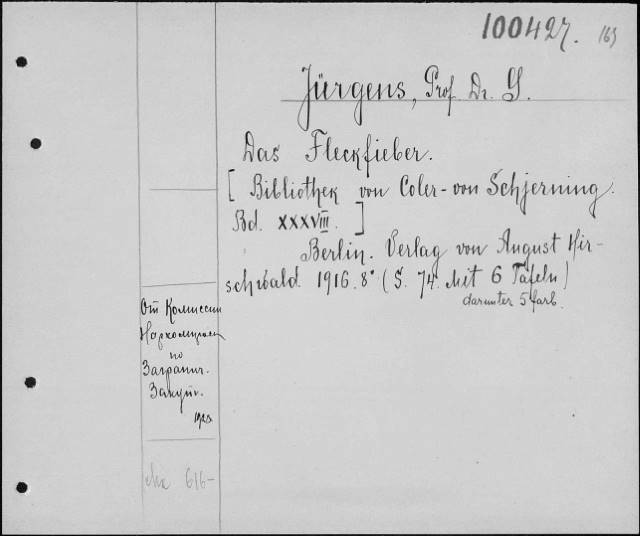 100427. 163
Jürgens, Prof. Dr. G.
Das Fleckfieber.
[Bibliothek von Coler-von Schjerning.
Bd. XXXVIII.]
Berlin. Verlag von August Hir-
schwald. 1916. 8° (S. 74. Mit 6 Tafeln)
darunter 5 farb.
От Комиссии
по
Загранич.
Закуп.
616-